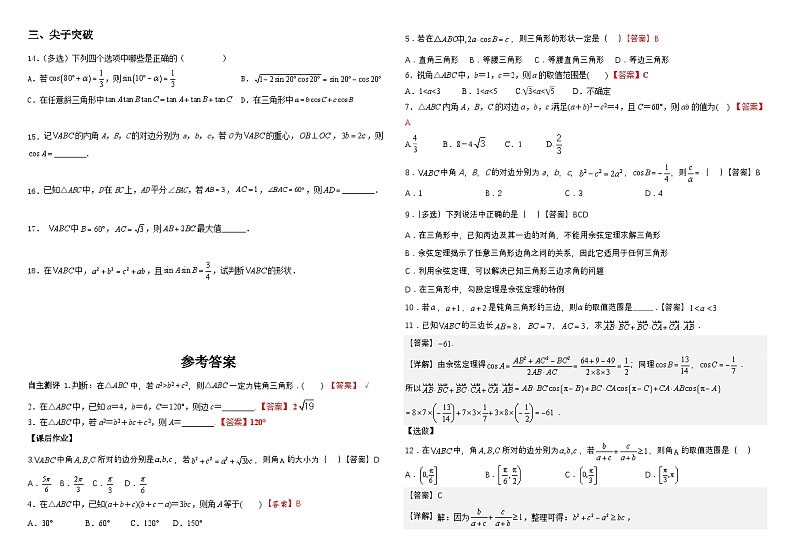 三、尖子突破
14.(多选)下列四个选项中哪些是正确的(　　)
A．若cos(80°+α)=1/3，则sin(10°−α)=1/3　　B．√(1−2sin20°cos20°)=sin20°−cos20°
C．在任意斜三角形中tanAtanBtanC=tanA+tanB+tanC　D．在三角形中a=bcosC+ccosB
15．记∇ABC的内角A，B，C的对边分别为a，b，c，若O为∇ABC的重心，OB⊥OC，3b=2c，则
cosA=________．
16．已知△ABC中，D在BC上，AD平分∠BAC，若AB=3，AC=1，∠BAC=60°，则AD=________．
17．∇ABC中B=60°，AC=√3，则AB+2BC最大值______．
18．在∇ABC中，a²+b²=c²+ab，且sinAsinB=3/4，试判断∇ABC的形状．
参考答案
自主测评 1.判断：在△ABC中，若a²>b²+c²，则△ABC一定为钝角三角形．(　　)【答案】 √
2．在△ABC中，已知a＝4，b＝6，C＝120°，则边c＝________.【答案】 2√19
3．在△ABC中，若a²＝b²＋bc＋c²，则A＝________.【答案】120°
【课后作业】
3.∇ABC中角A,B,C所对的边分别是a,b,c，若b²+c²=a²+√3bc，则角A的大小为（　）【答案】D
A．5π/6　B．2π/3　C．π/3　D．π/6
4．在△ABC中，已知(a＋b＋c)(b＋c－a)＝3bc，则角A等于(　　)【答案】B
A．30°　　B．60°　　C．120°　D．150°
5．若在△ABC中,2a·cosB=c，则三角形的形状一定是（　）【答案】B
A．直角三角形　B．等腰三角形　C．等腰直角三角形　D．等边三角形
6．锐角△ABC中，b＝1，c＝2，则a的取值范围是(　　)【答案】C
A．1<a<3　　B．1<a<5　　C.√3<a<√5　　D．不确定
7．△ABC内角A，B，C的对边a，b，c满足(a＋b)²－c²＝4，且C＝60°，则ab的值为(　)【答案】
A
A.4/3　　B．8－4√3　　C．1　　D.2/3
8．∇ABC中角A，B，C的对边分别为a，b，c，b²−c²=2a²，cosB=−1/4，则c/a=（　）【答案】B
A．1　　B．2　　C．3　　D．4
9．(多选)下列说法中正确的是（　）【答案】BCD
A．在三角形中，已知两边及其一边的对角，不能用余弦定理求解三角形
B．余弦定理揭示了任意三角形边角之间的关系，因此它适用于任何三角形
C．利用余弦定理，可以解决已知三角形三边求角的问题
D．在三角形中，勾股定理是余弦定理的特例
10．若a，a+1，a+2是钝角三角形的三边，则a的取值范围是_____.【答案】1<a<3
11．已知∇ABC的三边长AB=8，BC=7，AC=3，求AB·BC+BC·CA+CA·AB．
【答案】−61.
【详解】由余弦定理得cosA=(AB²+AC²−BC²)/(2AB·AC)=(64+9−49)/(2×8×3)=1/2；同理cosB=13/14，cosC=−1/7．
所以AB·BC+BC·CA+CA·AB=AB·BCcos(π−B)+BC·CAcos(π−C)+CA·ABcos(π−A)
=8×7×(−13/14)+7×3×1/7+3×8×(−1/2)=−61．
【选做】
12．在∇ABC中，角A,B,C所对的边分别为a,b,c，若b/(a+c)+c/(a+b)≥1，则角A的取值范围是（　）
A．(0,π/6]　　B．[π/6,π/2)　　C．(0,π/3]　　D．[π/3,π)
【答案】C
【详解】解：因为b/(a+c)+c/(a+b)≥1，整理可得：b²+c²−a²≥bc，